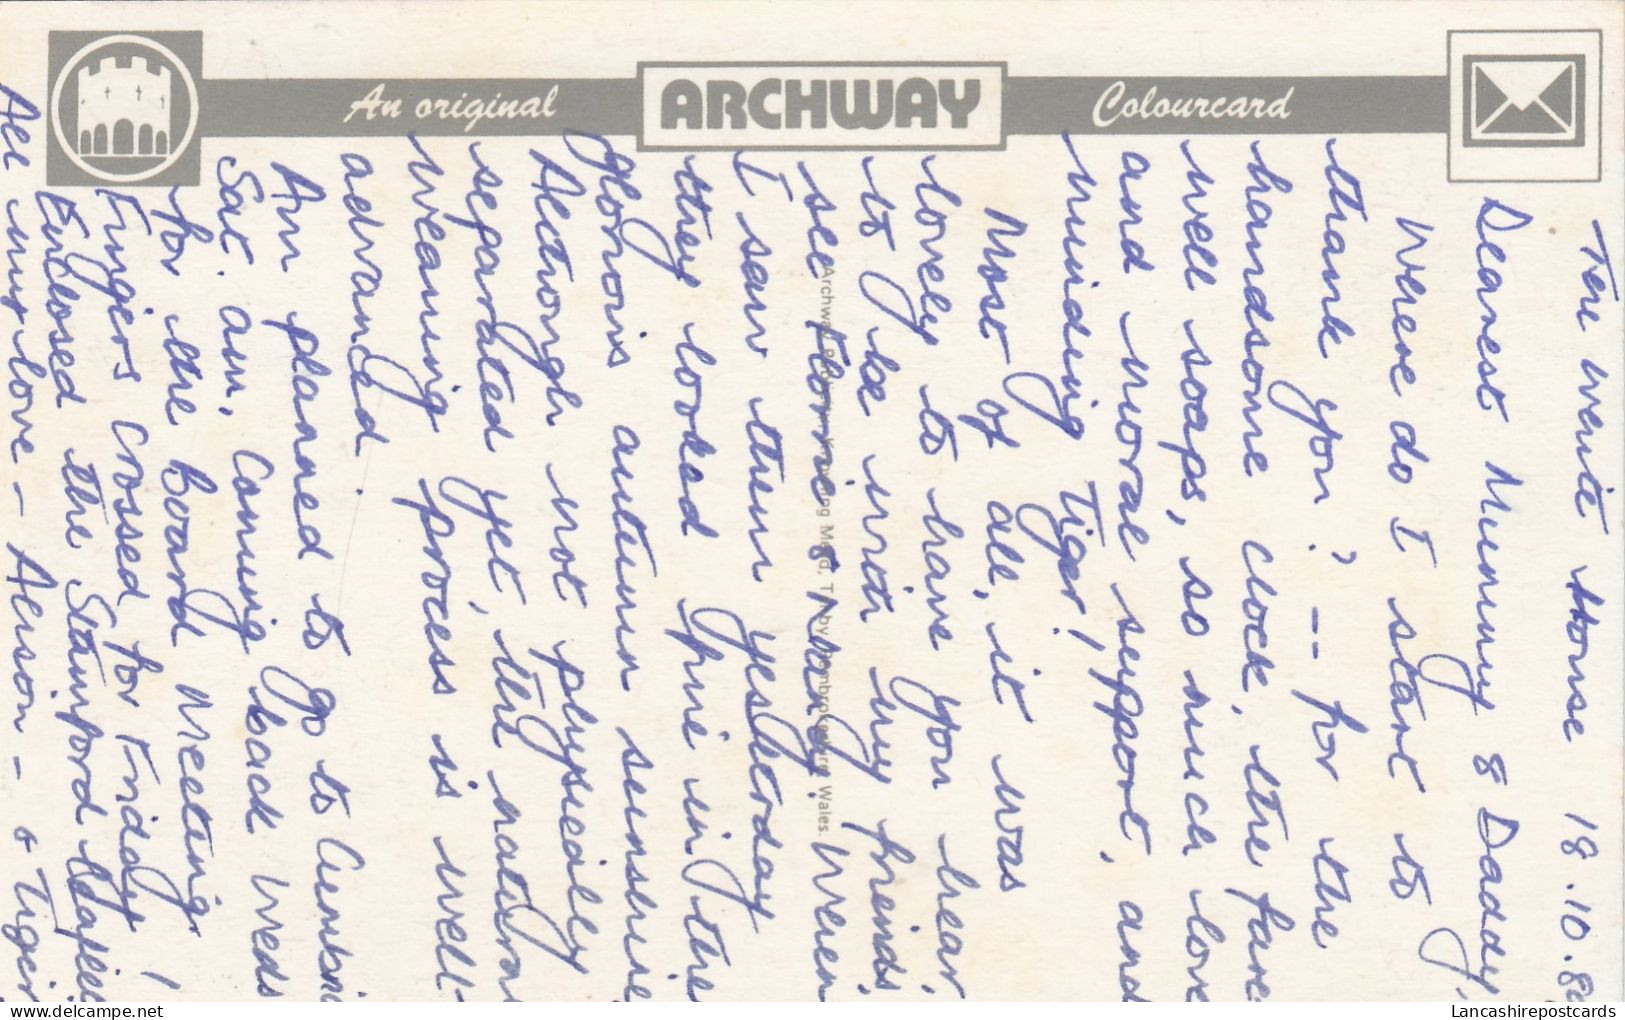 An original ARCHWAY Colourcard
House 18.10.8
Dearest Mummy & Daddy,
Where do I start to
thank you? -- for the
handsome clock, the fare
well soaps, so much love
and moral support, and
minding Tiger!
Most of all, it was
lovely to have you hear,
to be with my friends,
see Florrie & When
I saw them yesterday
they looked fine in the
glorious autumn sunshine
Although not physically
separated yet, the natural
weaning process is well-
advanced.
Am planned to go to
Sat. am. Coming back Weds
for the Board Meeting.
Fingers crossed for Friday!
Enclosed the Stamford leaflet
All my love - Alison - & Tiger
Archway Wales.
Lancashirepostcards